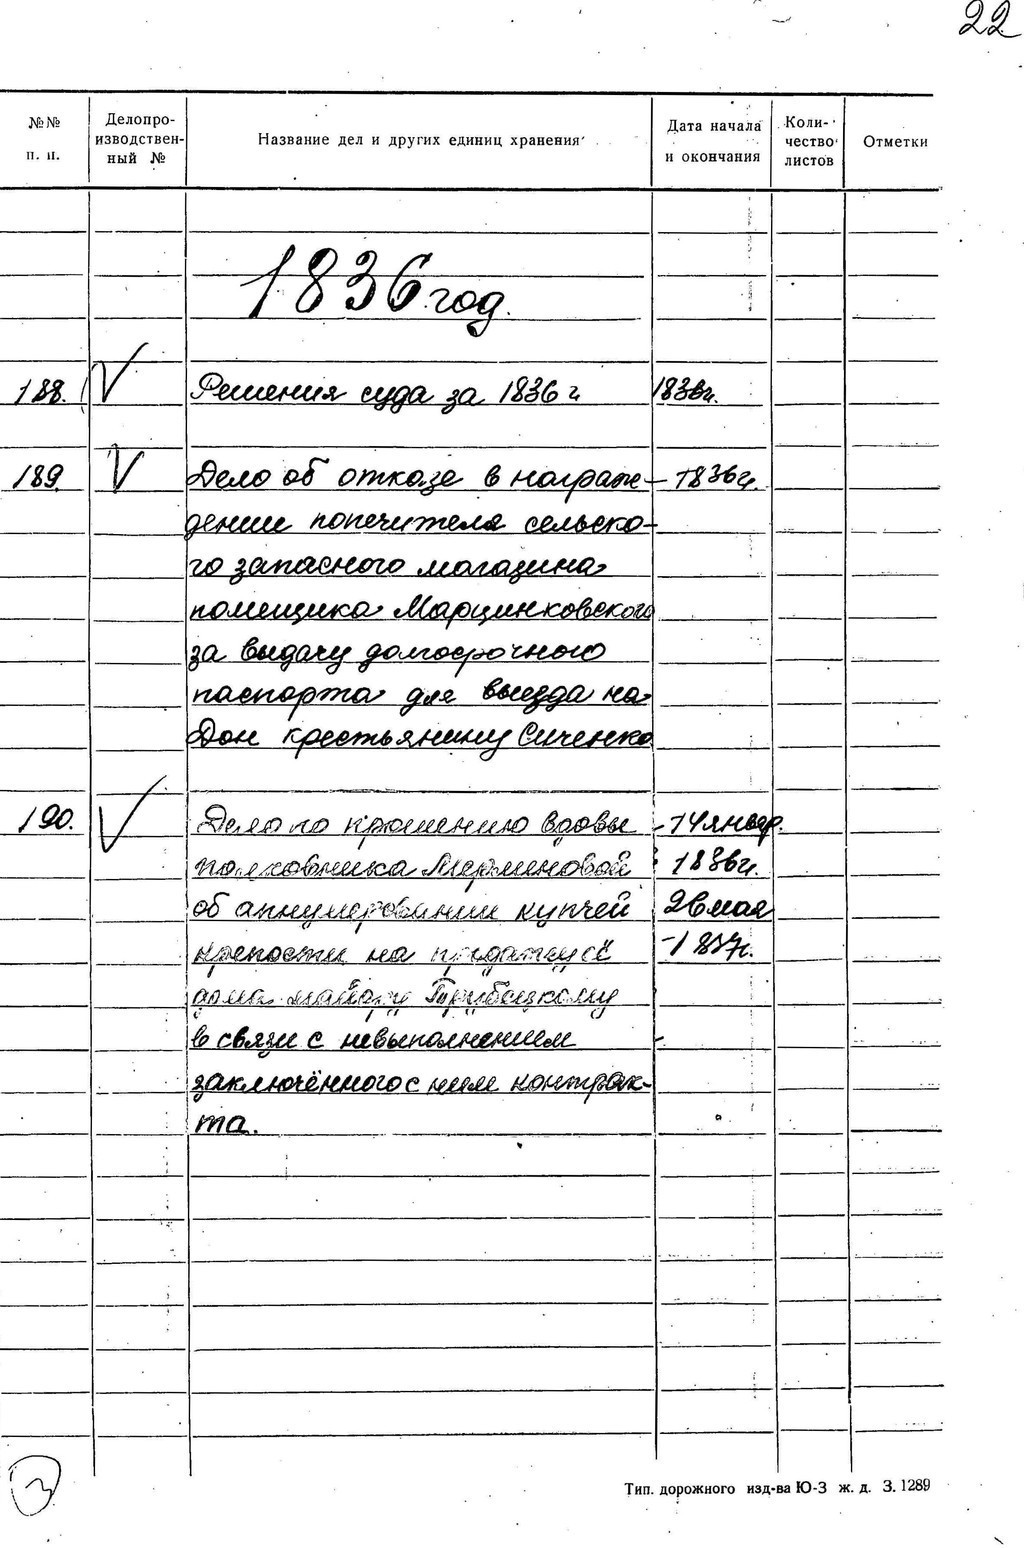 22
№№ п. п. Делопро-изводствен-ный № Название дел и других единиц хранения Дата начала и окончания Коли-чество листов Отметки
1836 год.
188. Решения суда за 1836 г 1836г.
189. Дело об отказе в награж- 1836г.
дении попечителя сельско-
го запасного магазина
помещика Марцинковского
за выдачу долгосрочного
паспорта для выезда на
Дон крестьянину Сиченко
190. Дело по прошению вдовы 14 январ.
полковника 1836г.
об аннулировании купчей 26 мая
крепости на продажу её 1837г.
дома майору
в связи с невыполнением
заключённого с ним контрак-
та.
3
Тип. дорожного изд-ва Ю-З ж. д. З. 1289